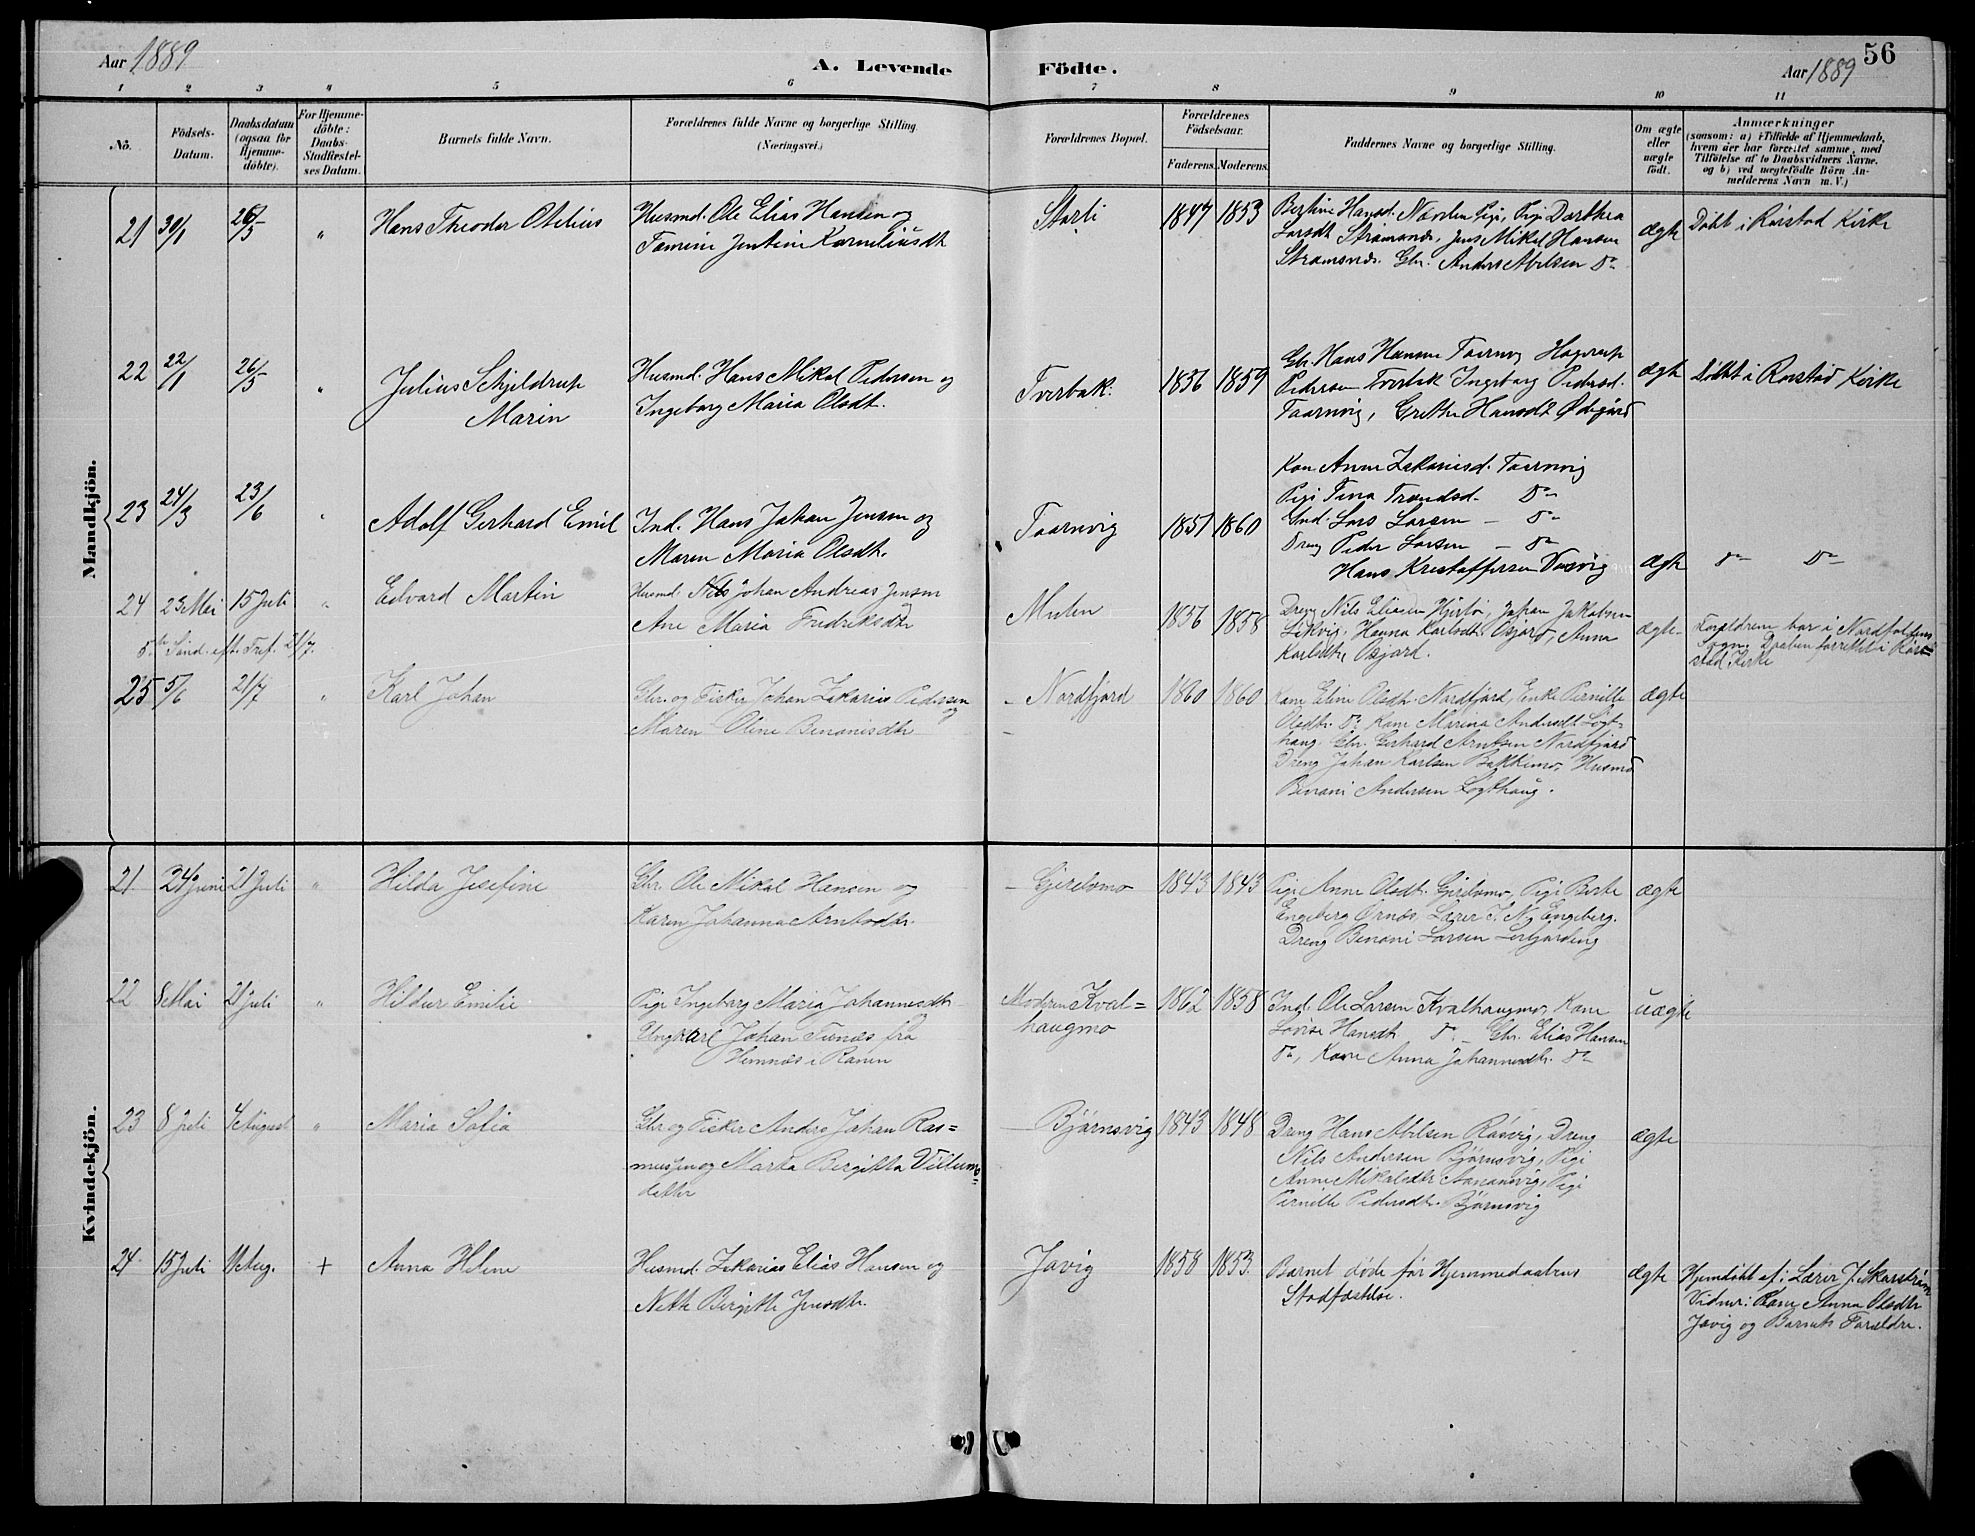 Aar 1889
A. Levende Födte.
Aar 1889
56
1 2 3 4 5 6 7 8 9 10 11
No.
Födsels-Datum.
Daabsdatum (ogsaa for Hjemme-döbte).
For Hjemme-döbte: Daabs-Stadfæstel-ses Datum.
Barnets fulde Navn.
Forældrenes fulde Navne og borgerlige Stilling.
(Næringsvei.)
Forældrenes Bopæl.
Forældrenes Födselsaar.
Faderens. Moderens.
Faddernes Navne og borgerlige Stilling.
Om ægte eller uægte födt.
Anmærkninger
(saasom: a) i Tilfælde af Hjemmedaab,
hvem der har forrettet samme, med
Tilföielse af to Daabsvidners Navne,
og b) ved uægtefödte Börn An-
melderens Navn m. V.)
Mandkjön.
21 30/1 26/5 " Hans Theodor Otelius
Husmd. Ole Elias Hansen og
Jentine Korneliusdt
Storli 1847 1853
Bertine Hansd. Pige, Pige Dorthea
Larsdt Strömsnes, Jens Mikal Hansen
Strömsnes. Gbr. Anders Abelsen Do
ægte
Döbt i Rörstad Kirke
22 22/1 26/5 " Julius Schjeldrup
Marin
Husmd. Hans Mikal Pedersen og
Ingeborg Maria Olsdt.
Tverbak. 1856 1859
Gbr. Hans Hansen Taarnvig Hagerup
Pedersen Tverbak Ingeborg Pedersd.
Taarnvig, Grethe Hansdt Ödegård
ægte
Döbt i Rörstad Kirke
23 24/3 23/6 " Adolf Gerhard Emil
Ind. Hans Johan Jensen og
Maren Maria Olsdt.
Taarnvig 1851 1860
Kone Anne Zakariasd. Taarnvig
Pige Tina Trondsd. Do
Ind. Lars Larsen — Do
Dreng Peder Larsen — Do
Hans Kristoffersen
ægte
Do Do
24 23 Mai 15 Juli " Edvard Martin
5te Sönd. eft. Tref. 21/7.
Husmd Nils Johan Andreas Jensen
Ane Maria Fredriksdtr
Mulen 1856 1858
Dreng Nils Eliasen Hjertö, Johan Jakobsen
Hanna Karlsdtr Osjord, Anna
Karlsdtr Osjord.
ægte
Forældrene bor i Nordfoldens
Sogn. Daaben forrettet i Rör=
stad Kirke
25 5/6 21/7 " Karl Johan
Gbr. og Fisker Johan Zakarias Pedersen
og
Maren Oline Benonisdtr
Nordfjord 1860 1860
Kone Eline Olsdtr. Nordfjord, Enke Pernille
Olsdtr. Do Kone Marina Andersdt Løgt=
haug. Gbr. Gerhard Arntsen Nordfjord
Dreng Johan Karlsen Bakkemo, Husmd
Benoni Andersen Løgthaug.
ægte
Kvindekjön.
21 24 Juni 21 Juli " Hilda Josefine
Gbr. Ole Mikal Hansen og
Karen Johanna Arntsdtr.
Gjerelvmo 1843 1843
Pige Anne Olsdt. Gjerelvmo, Pige Berte
Engeberg Örnes, Lærer J. N. Engeberg.
Dreng Benoni Larsen Leifjording
ægte
22 8 Mai 21 Juli " Hildur Emilie
Pige Ingeborg Maria Johannesdtr
og
Ungkarl Johan fra
Hemnes i Ranen
Moderen Kval=
haugmo
1862 1858
Ind. Ole Larsen Kvalhaugmo, Kone
Lovise Hansdtr Do. — Gbr. Elias Hansen
Do, Kone Anna Johannesdtr. Do
uægte
23 8 Juli 4 August " Maria Sofia
Gbr og Fisker Anders Johan Ras=
mussen og Marta Bergitta Villums
datter
Björnsvig 1843 1848
Dreng Hans Abelsen Rösvig, Dreng
Nils Andersen Björnsvig, Pige
Anne Mikalsdtr Aasansvig, Pige
Pernille Pedersdtr. Björnsvig
ægte
24 15 Juli 11 Aug. + Anna Helene
Husmd. Zakarias Elias Hansen og
Nette Birgitte Jensdtr.
Javig 1858 1853.
Barnet döde för Hjemmedaabens
Stadfæstelse.
ægte
Hjemdöbt af: Lærer J. Skarström
Vidner: Kone Anna Olsdtr
Javig og Barnets Forældre.